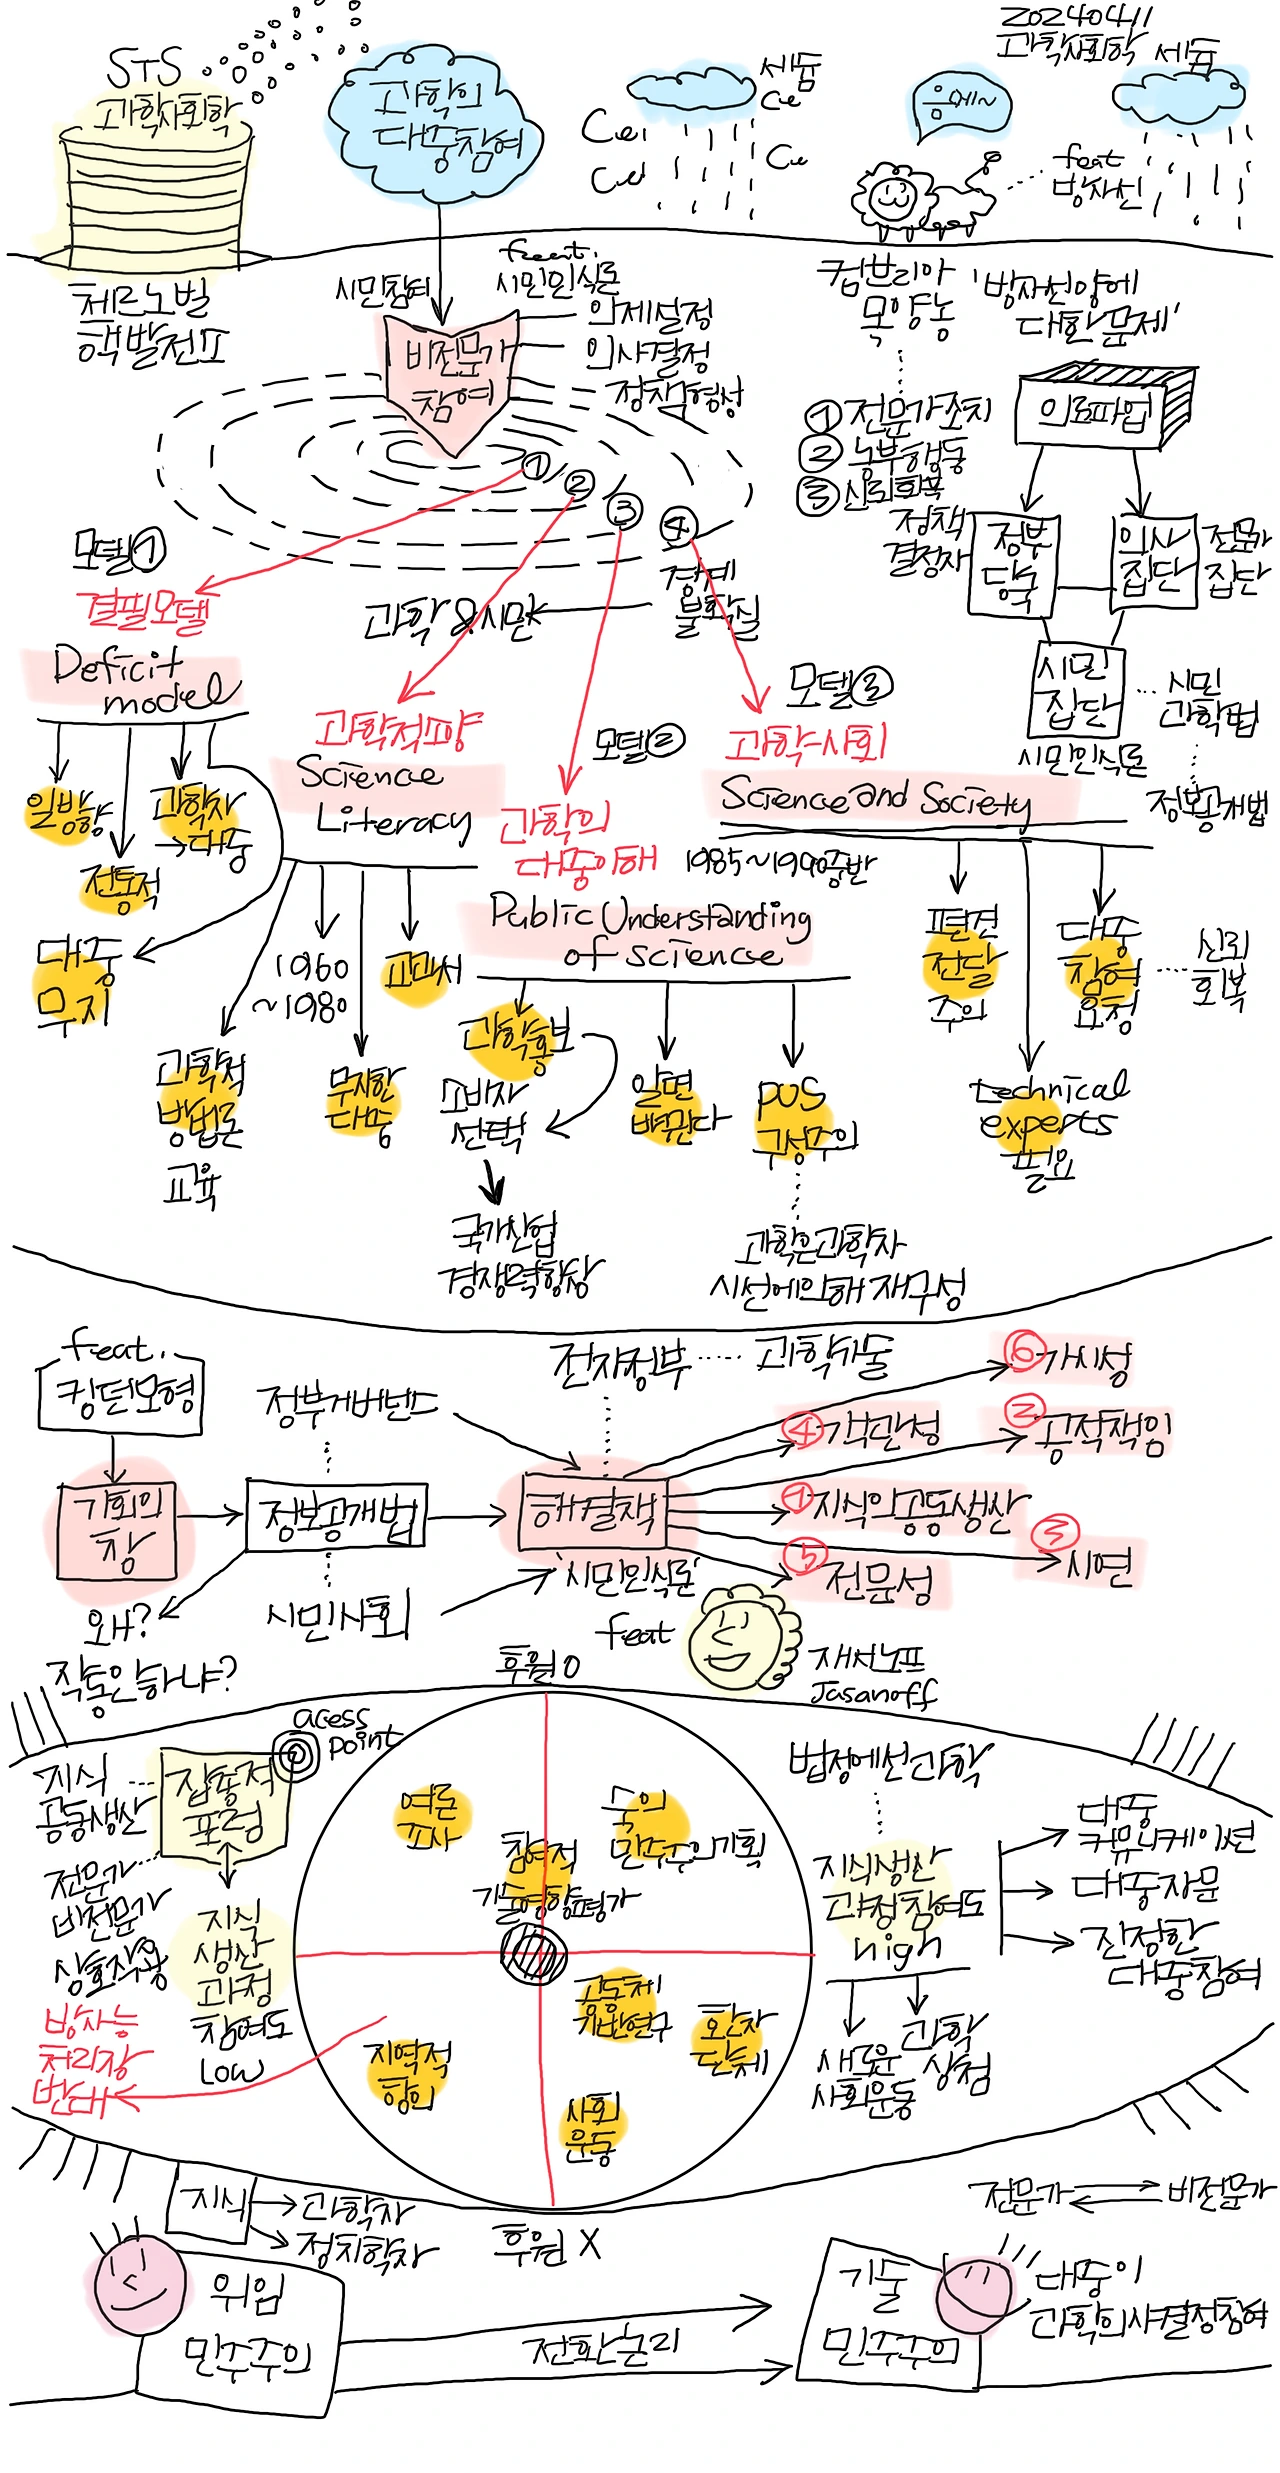 STS
과학사회학
체르노빌
핵발전소
과학의
대중참여
세슘
Ce
Ce
Ce
Ce
20240411
과학사회학
세슘
음메~
feat
방사선
시민참여
feat.
시민인식론
비전문가
참여
의제설정
의사결정
정책형성
컴브리아
목양농
'방사선양에
대한문제'
① 전문가조치
② 농부행동
③ 신뢰회복
의료파업
정책
결정자
정부
당국
의사
집단
전문가
집단
시민
집단
시민인식론
시민
과학법
정보공개법
①
②
③
④
경계
불확실
과학&시민
모델①
결필모델
Deficit
model
일방향
전통적
과학자
→대중
대중
무지
과학적교양
Science
Literacy
과학적
방법론
교육
1960
~1980
무지한
대중
교과서
모델②
과학의
대중이해
1985~1990중반
Public Understanding
of science
과학홍보
소비자
선택
국가산업
경쟁력향상
알면
바뀐다
PUS
구성주의
과학은과학자
시선에의해 재구성
모델③
과학-사회
Science and Society
편견
전달
주의
technical
experts
필요
대중
참여
요청
신뢰
회복
feat.
킹던모형
기회의
창
정부거버넌스
정보공개법
시민사회
왜?
작동안하냐?
전자정부
과학기술
해결책
'시민인식론'
feat
재서노프
Jasanoff
⑥가시성
④객관성
②공적책임
①지식의공동생산
③시연
⑤전문성
후원 O
acess
point
지식
공동생산
잡종적
포럼
전문가
비전문가
상호작용
지식
생산
과정
참여도
Low
방사능
처리장
반대
여론
조사
숙의
민주주의기획
참여적
기술영향평가
공동체
기반연구
환자
단체
지역적
항의
사회
운동
후원 X
법정에선과학
지식생산
과정참여도
high
대중
커뮤니케이션
대중자문
진정한
대중참여
새로운
사회운동
과학
상점
지식
과학자
정치학자
위임
민주주의
전환논리
전문가
비전문가
기술
민주주의
대중이
과학의사결정참여